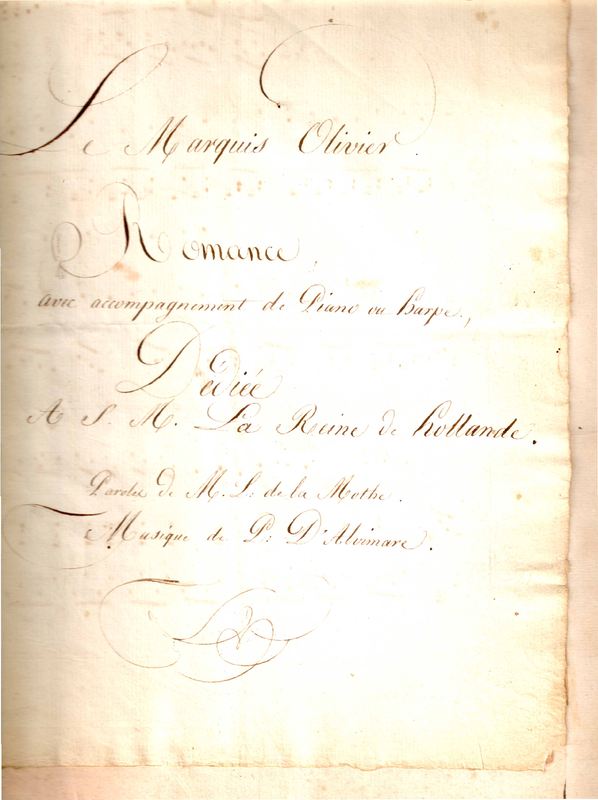 Le Marquis Olivier.
Romance,
avec accompagnement de Piano ou harpe,
Dédiée
A S. M. La Reine de hollande.
Paroles de M. S: de la Mothe.
Musique de P: D'Alvimare.